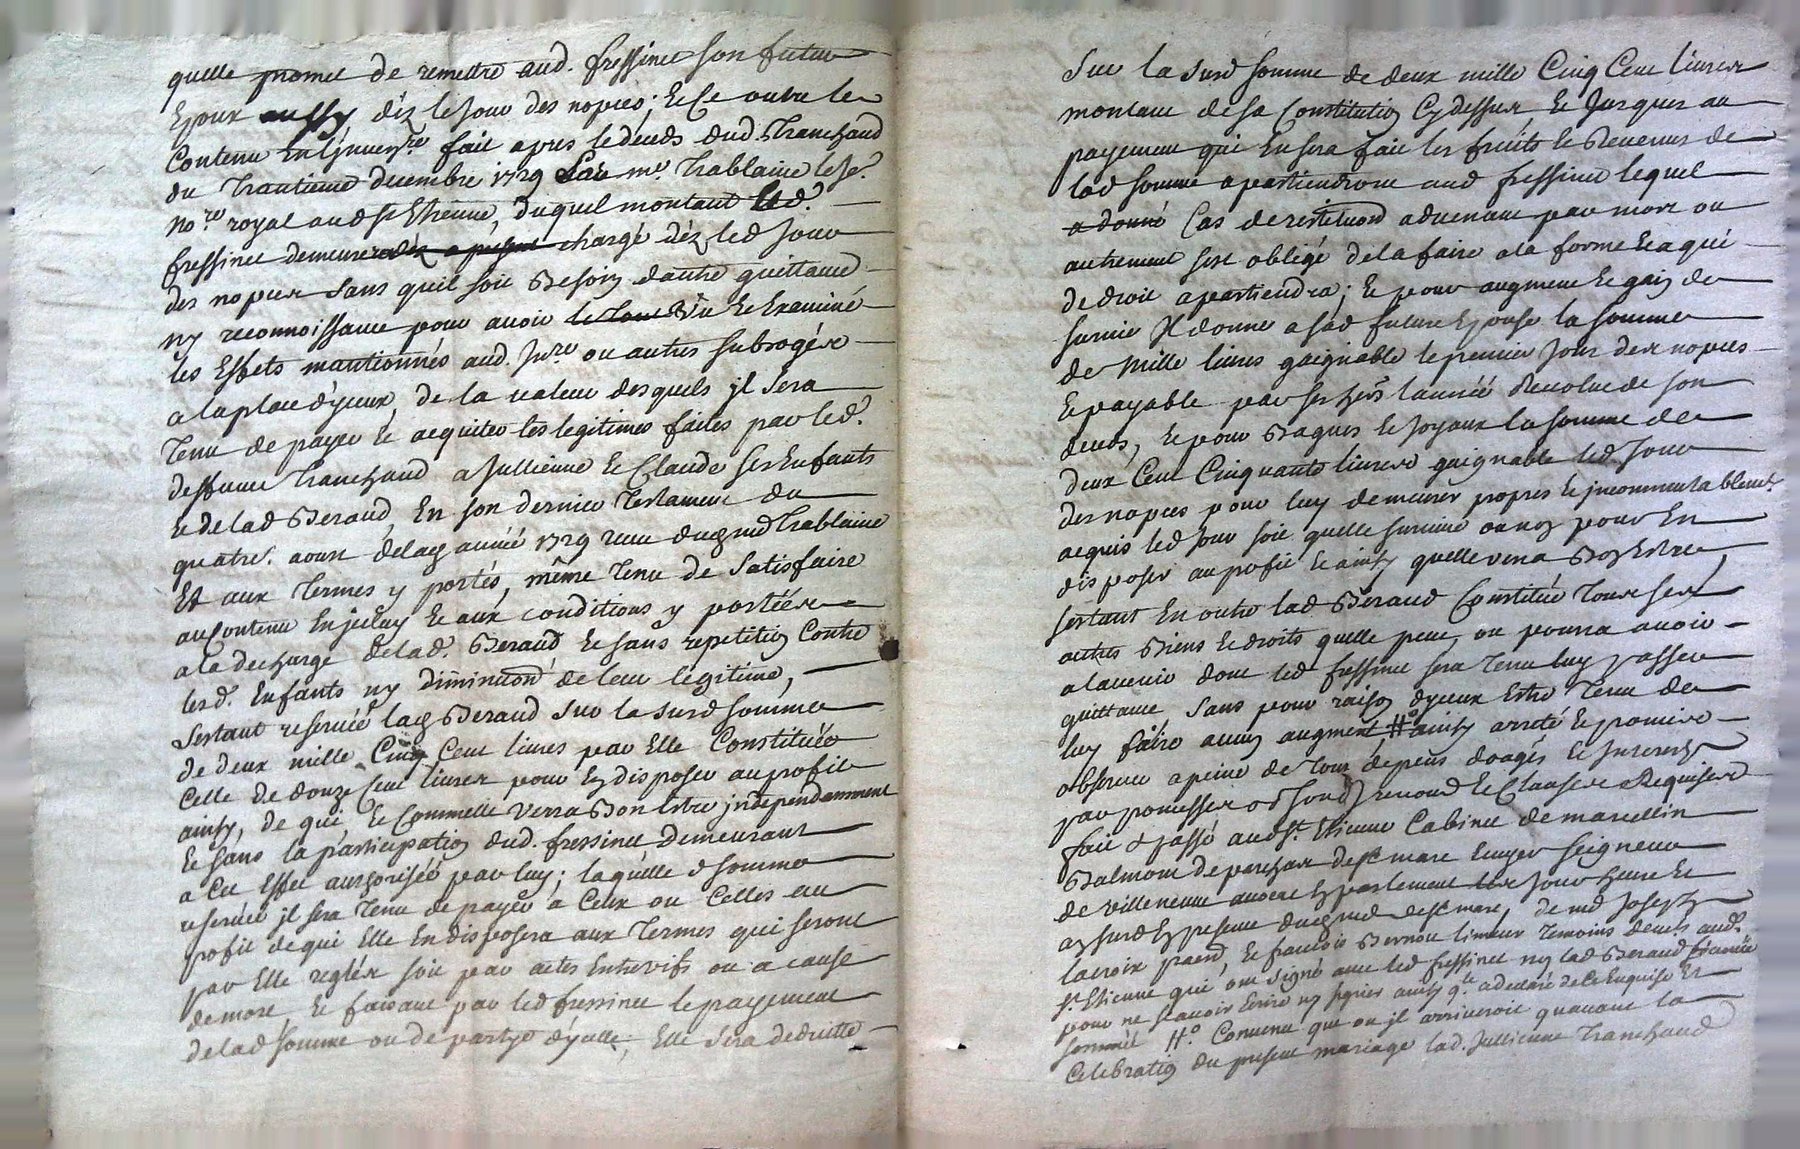 quelle promet de remettre aud. fressinet son futur
Epoux aussy déz le jour des nopces; Et Ce outre le
Contenu En l'jnven.re fait apres le deceds dud. Tranchand
du Trantieme decembre 1729 Par me. Trablaine le je.
No.re royal aud st Etienne, duquel montant led.
fressinet demeurera déz a present chargé déz led jour
des nopces sans quil soit Besoin dautre quittance
ny reconnoissance pour avoir le tout Vu et Examiné
les Effets mantionnés aud. jn.re ou autres subrogés
a la place d'yceux, de la valeur desquels jl sera
Tenu de payer et acquiter les legitimes faites par led.
deffunct Tranchand a Jullienne et Claude ses Enfants
et de lad Beraud, En son dernier Testament du
quatre. aoust de lad année 1729 receu dud me Trablaine
Et aux Termes y portés, même Tenu de Satisfaire
au Contenu En jceluy et aux conditions y portées
a la decharge de lad. Beraud et sans repetition Contre
lesd. Enfants ny diminution de leur legitime,
Sestant reservée lad Beraud sur la susd somme
de deux mille Cinq Cent livres par Elle Constituée
Celle de douze Cent livres pour En disposer au profit
ainsy, de qui et Comme Elle Verra Bon Estre jndependamment
Et sans la participation dud. fressinet demeurant
a Cet Effet authorisée par luy; laquelle d somme
reservée jl sera Tenu de payer a Ceux ou Celles au
profit de qui Elle En disposera aux Termes qui seront
par Elle reglés soit par actes Entrevifs ou a cause
de mort, Et faisant par led fressinet le payement
de lad somme ou de partye d'ycelle, Elle sera deduitte
Sur la susd somme de deux mille Cinq Cent livres
montant de sa Constitution Cy dessus, Et Jusques au
payement qui En sera fait les fruits Et Revenus de
lad somme apartiendront aud fressinet lequel
a donné Cas de restitution advenant par mort ou
autrement sest obligé de la faire a la forme Et a qui
de droit apartiendra; Et pour augment Et gain de
survie Jl donne a sad future Epouse la somme
de Mille livres gaignable le premier Jour des nopces
Et payable par ses hers lannée Revolue de son
deceds, Et pour Bagues Et Joyaux la somme de
deux Cent Cinquante livres gaignable led Jour
des nopces pour luy demeurer propres Et jncommutablemt.
acquis led Jour soit quelle survive ou non pour En
disposer au profit Et ainsy quelle verra Bon Estre,
sestant En outre lad Beraud Constitué Tous ses
autres Biens Et droits quelle peut, ou pourra avoir
a lavenir dont led fressinet sera Tenu luy passer
quittance sans pour raison d'yceux Estre Tenu de
luy faire aucun augment H.o ainsy arreté Et promis
observer a peine de Tous dépens domages Et Jnterests
par promesses obligaons renonon Et Clauses Requises
fait & passé aud st. Etienne Cabinet de marcellin
Balmont de parchas de st mare Ecuyer Seigneur
de villeneuve avocat En parlement les jour heure Et
an susd En presence dud sieur de st mare, de me Joseph
lacroix praen, Et francois Bernou limeur Temoins deuels aud.
st. Etienne qui ont signé avec led fressinet ny lad Beraud
pour ne scavoir Ecrire ny signer ainsy q.lle a declaré de Ce Enquise Et
sommée H.o Convenu que ou jl arriveroit quavant la
Celebration du present mariage lad. Jullienne Tranchand